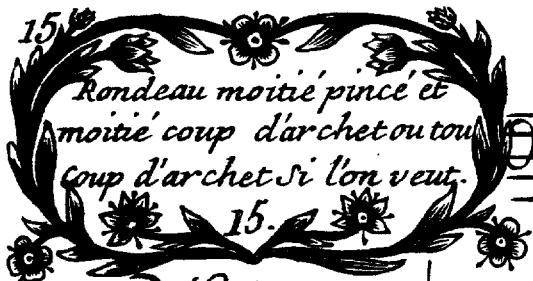 15
Rondeau moitié pincé et
moitié coup d'archet ou tou
Coup d'archet Si l'on veut.
15.